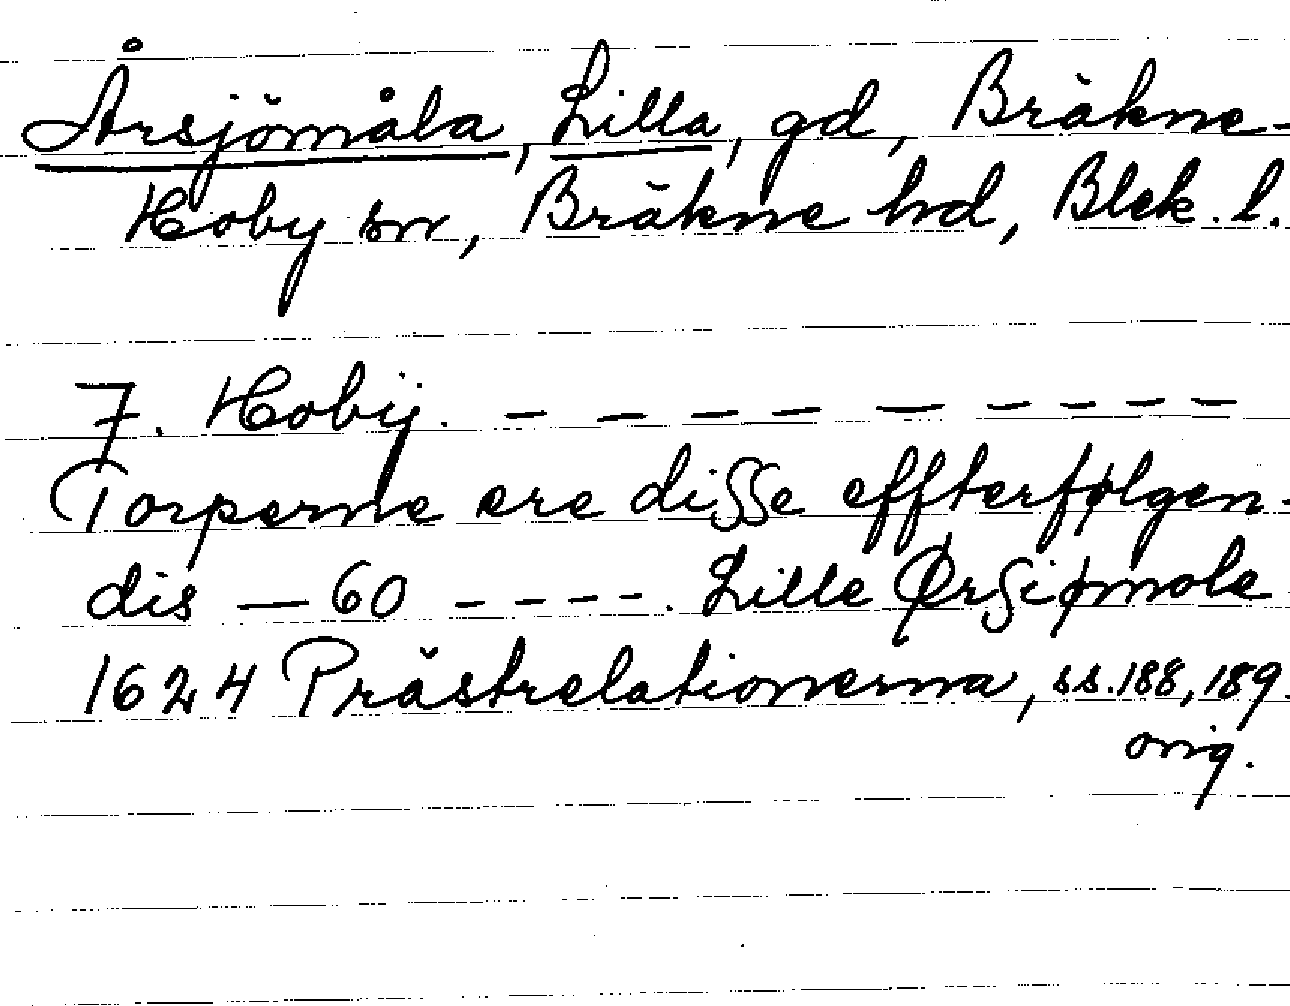 Årsjömåla, Lilla, gd, Bräkne-
Hoby sn, Bräkne hd, Blek. l.
7. Hobÿ. – – – – – – – – –
Torperne ere diſſe effterfølgen-
dis — 60 – – – – . Lille Ørſiømole
1624 Prästrelationerna, ss. 188, 189.
orig.